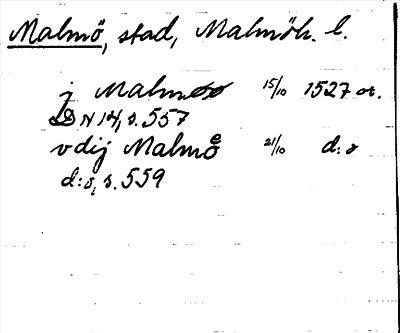 Malmö, stad, Malmöh. l.
j Malmoo 15/10 1527 or.
DN 14, s. 557
v dij Malmoͤ 21/10 d:o
d:o, s. 559